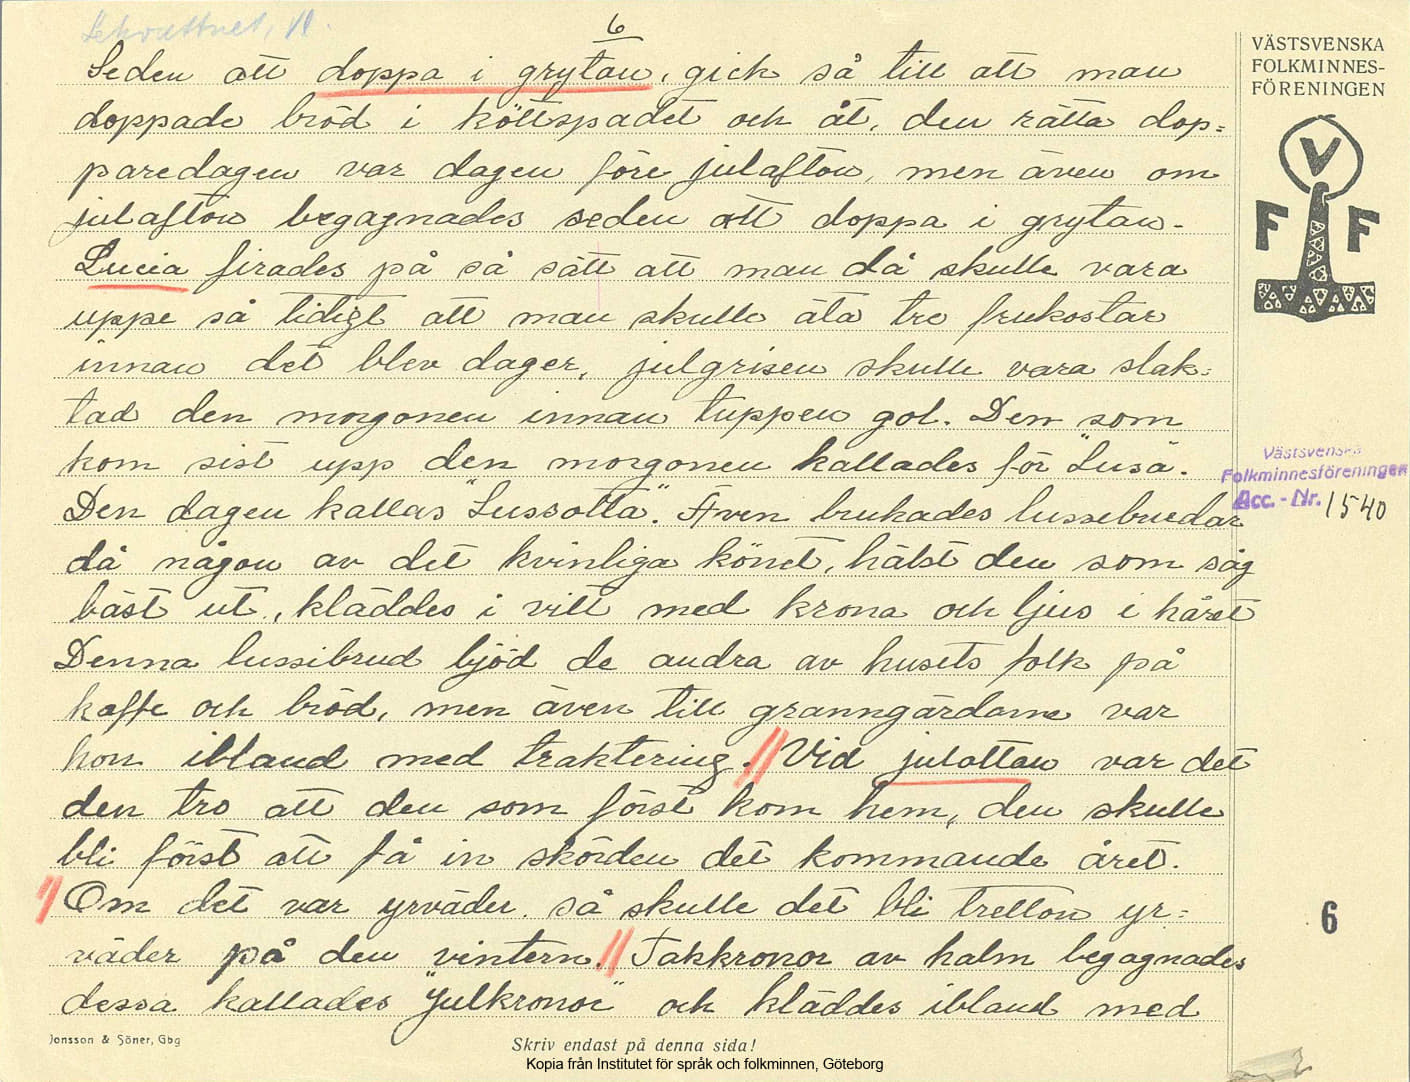 6
Seden att doppa i grytan, gick så till att man
doppade bröd i köttspadet och åt, den rätta dop=
paredagen var dagen före julafton, men även om
julafton begagnades seden att doppa i grytan.
Lucia firades på så sätt att man då skulle vara
uppe så tidigt att man skulle äta tre frukostar
innan det blev dager, julgrisen skulle vara slak=
tad den morgonen innan tuppen gol. Den som
kom sist upp den morgonen kallades för "Lusa".
Den dagen kallas "Lussotta". Även brukades lussebrudar
då någon av det kvinliga könet, hälst den som såg
bäst ut, kläddes i vitt med krona och ljus i håret
Denna lussibrud bjöd de andra av husets folk på
kaffe och bröd, men även till granngårdarne var
hon ibland med traktering. // Vid julottan var det
den tro att den som först kom hem, den skulle
bli först att få in skörden det kommande året.
// Om det var yrväder så skulle det bli tretton yr=
väder på den vintern. // Takkronor av halm begagnades
dessa kallades "Julkronor" och kläddes ibland med
VÄSTSVENSKA
FOLKMINNES-
FÖRENINGEN
V
F F
Västsvenska
Folkminnesföreningen
Acc. - Nr. 1540
6
Jonsson & Söner, Gbg
Skriv endast på denna sida!
Kopia från Institutet för språk och folkminnen, Göteborg